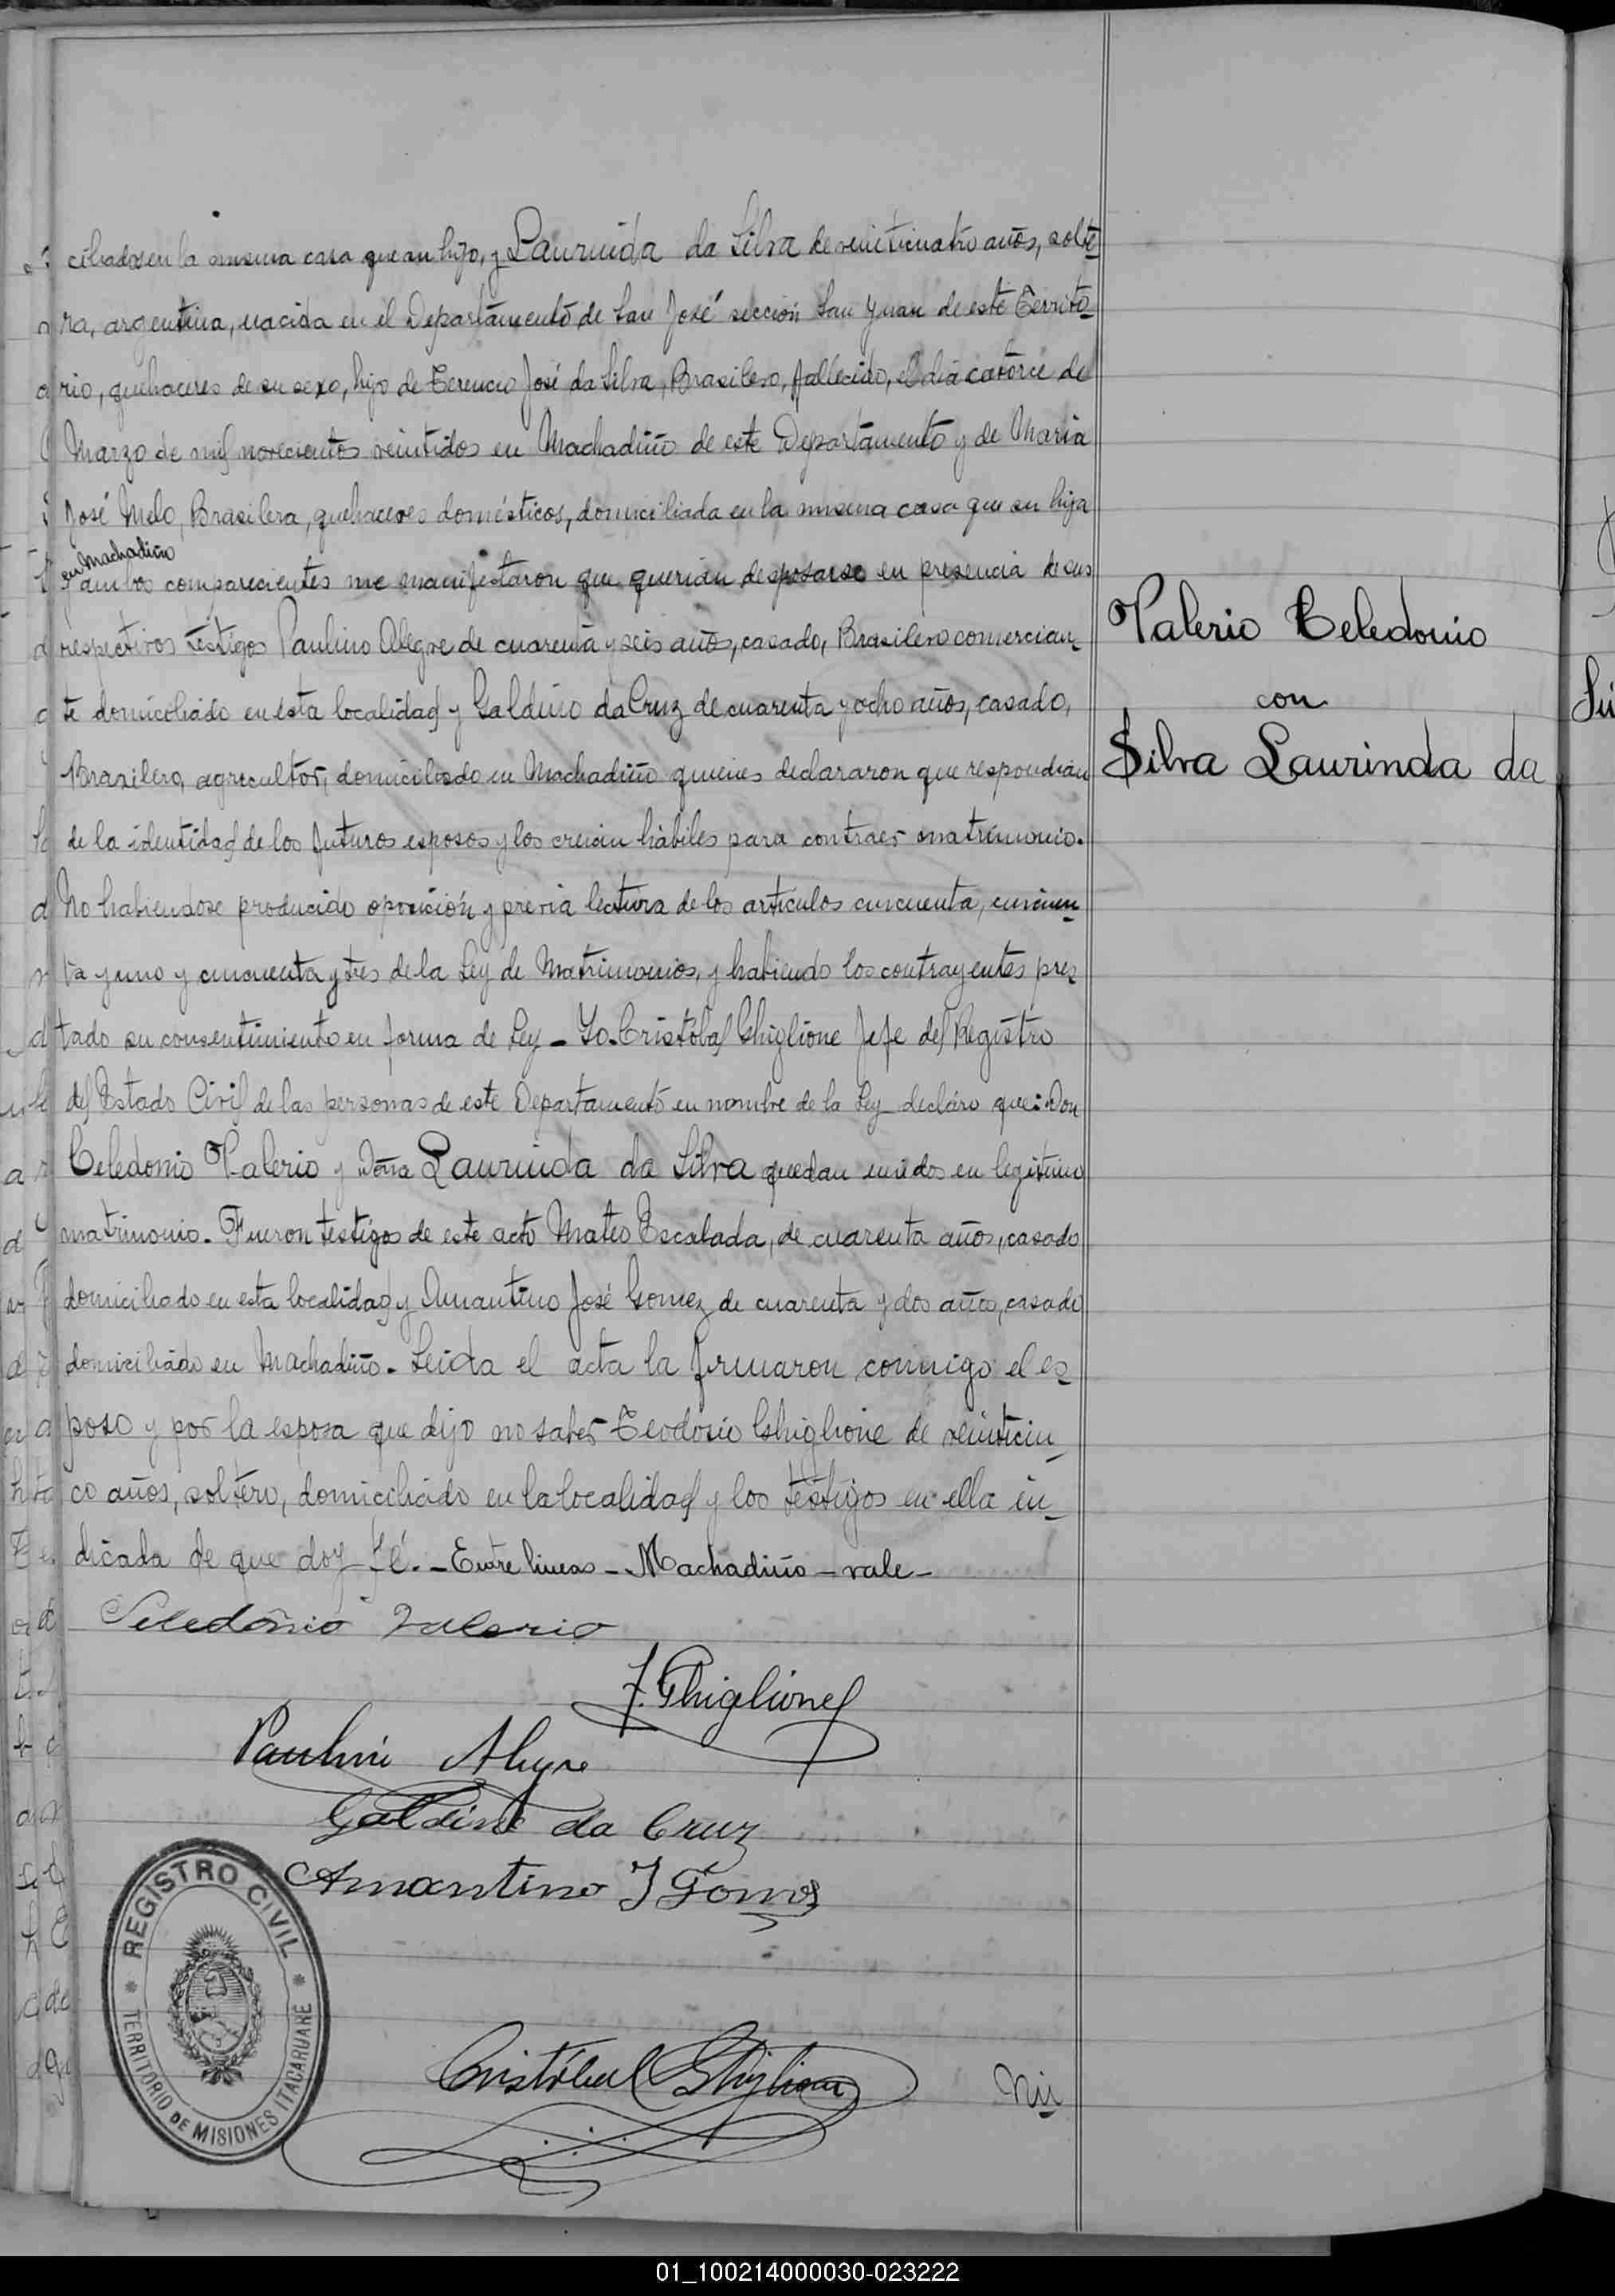 ciliados en la misma casa que su hijo, y Laurinda da Silva de veinticuatro años, solte-
ra, argentina, nacida en el Departamento de San José sección San Juan de este Territo-
rio, quehaceres de su sexo, hijo de Terencio José da Silva, Brasilero, fallecido, el dia catorce de
Marzo de mil novecientos veintidos en Machadiño de este Departamento y de Maria
José Melo, Brasilera, quehaceres domésticos, domiciliada en la misma casa que su hija
en Machadiño
y ambos comparecientes me manifestaron que querian desposarse en presencia de sus
respectivos testigos Paulino Alegre de cuarenta y seis años, casado, Brasilero comercian-
te domiciliado en esta localidad y Galdino da Cruz de cuarenta y ocho años, casado,
Brasilero, agricultor, domiciliado en Machadiño quienes declararon que respondian
de la identidad de los futuros esposos y los creian hábiles para contraer matrimonio.
No habiendose producido oposición y previa lectura de los artículos cincuenta, cincuen-
ta y uno y cincuenta y tres de la Ley de Matrimonios, y habiendo los contrayentes pres-
tado su consentimiento en forma de Ley - Yo. Cristóbal Ghiglione Jefe del Registro
del Estado Civil de las personas de este Departamento en nombre de la Ley declaro que: Don
Celedonio Valerio y Doña Laurinda da Silva quedan unidos en legitimo
matrimonio. Fueron testigos de este acto Mateo Escalada, de cuarenta años, casado
domiciliado en esta localidad y Amantino José Gomez de cuarenta y dos años, casado
domiciliado en Machadiño. Leida el acta la firmaron conmigo el es-
poso y por la esposa que dijo no saber Teodosio Ghiglione de veinticin-
co años, soltero, domiciliado en la localidad y los testigos en ella in-
dicada de que doy fé. - Entre lineas - Machadiño - vale -
Seledonio Valerio
T. Ghiglione
Paulino Alegre
Galdino da Cruz
Amantino J Gomes
Cristóbal Ghiglione
REGISTRO CIVIL
TERRITORIO DE MISIONES ITACARUARE
Valerio Celedonio
con
Silva Laurinda da
01_100214000030-023222